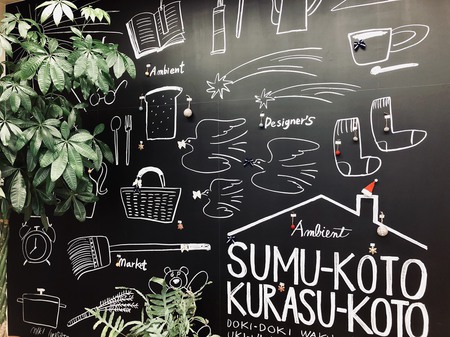 Ambient
Designer's
Ambient
SUMU-KOTO
KURASU-KOTO
DOKI-DOKI WAKU
Market